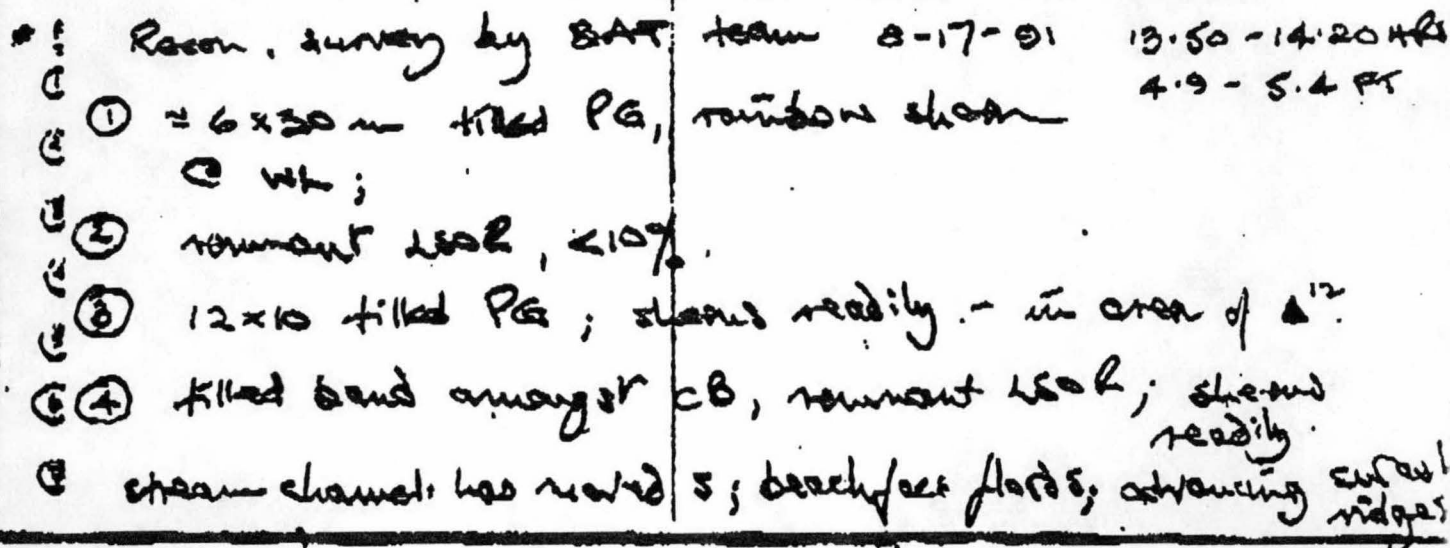 * Recon. survey by SAT team 8-17-91 13.50 - 14.20 HRS
4.9 - 5.4 FT
① ≈ 6x30 m tilled PG, rainbow sheen
@ WL;
② remnant LSOR, <10%.
③ 12x10 tilled PG; sheens readily. - in area of ▲12.
④ tilled band amongst CB, remnant LSOR; sheens
readily.
stream channel has moved S; beachface floods; advancing swash
ridges